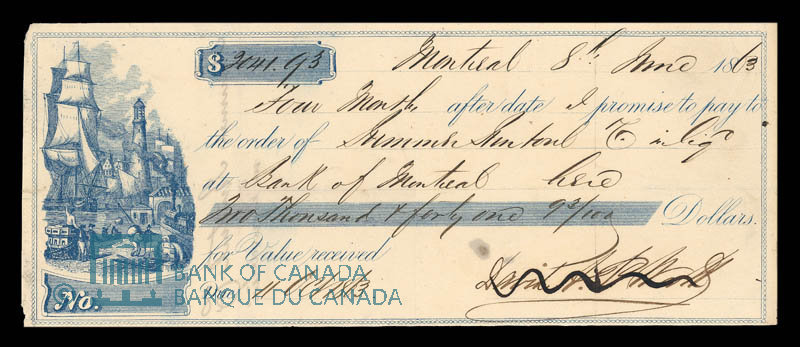 $ 2041.93
Montreal 8th June 1863
Four Months after date I promise to pay to
the order of
at Bank of Montreal here
Two Thousand & forty one 93/100 Dollars.
for Value received
BANK OF CANADA
BANQUE DU CANADA
No.